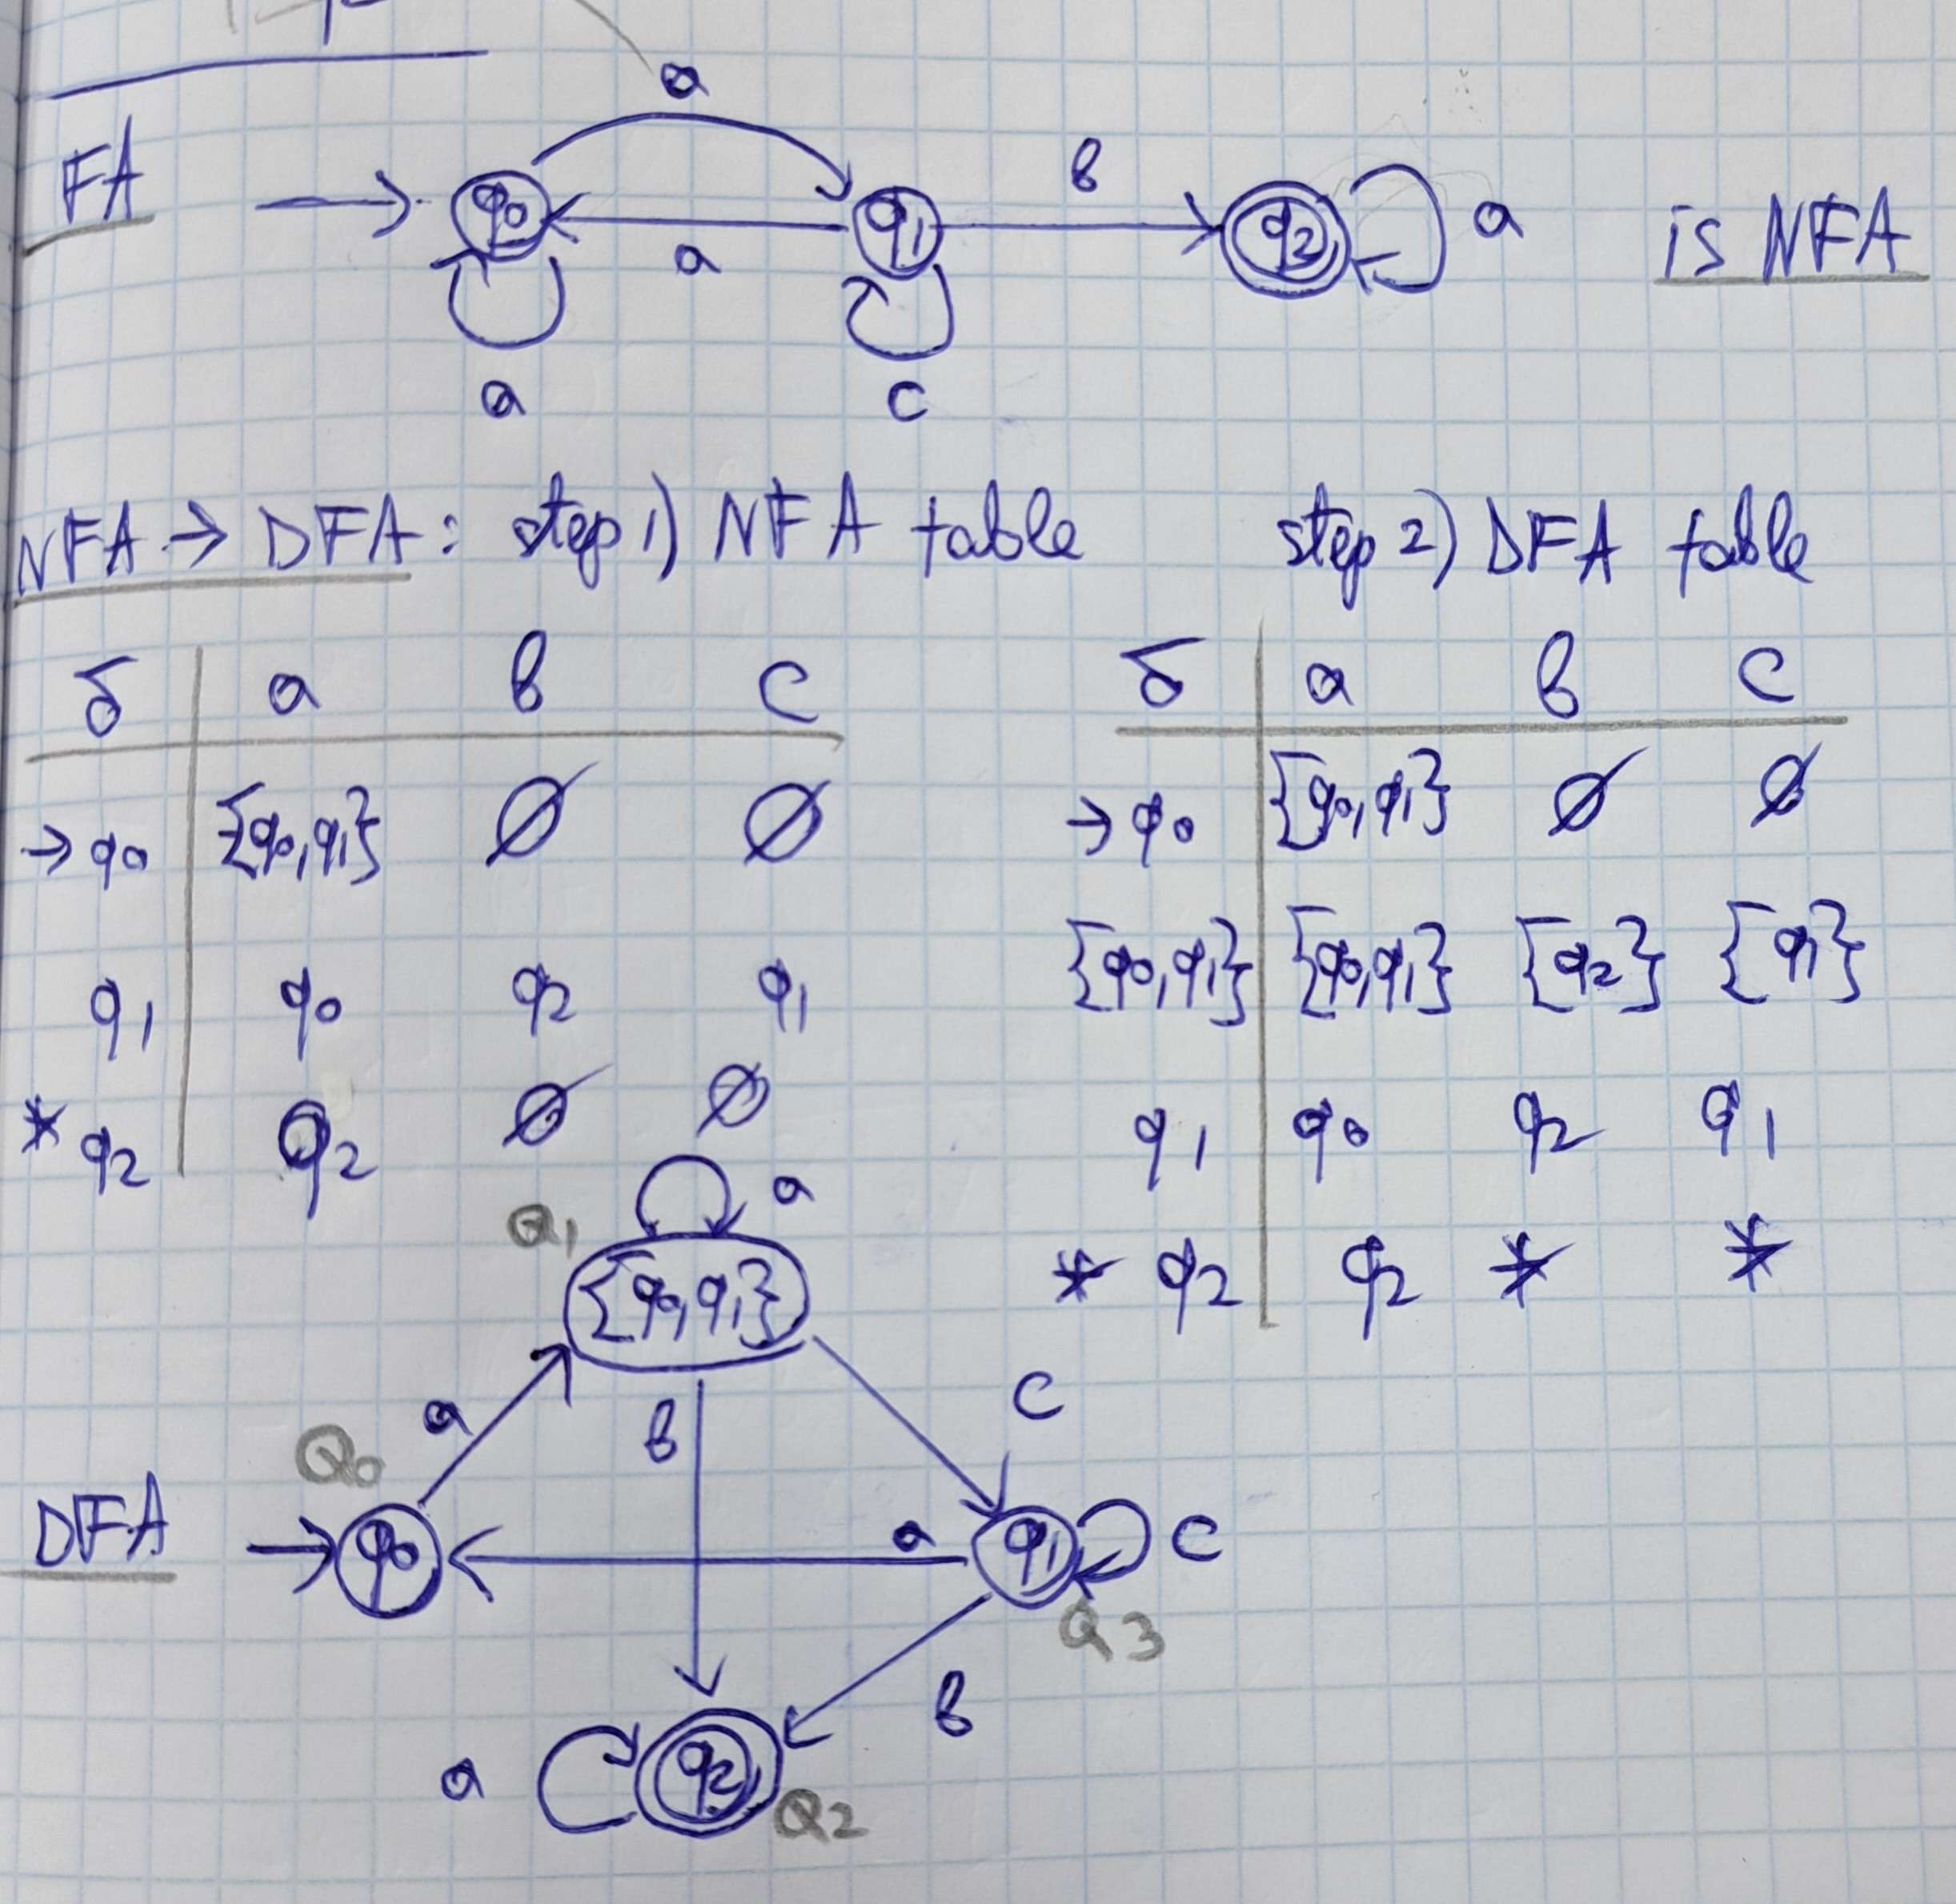 a
FA → q0 q1 b q2 a is NFA
a
a c
NFA → DFA: step 1) NFA table
δ a b c
→ q0 {q0,q1} ∅ ∅
q1 q0 q2 q1
* q2 q2 ∅ ∅
step 2) DFA table
δ a b c
→ q0 {q0,q1} ∅ ∅
{q0,q1} {q0,q1} {q2} {q1}
q1 q0 q2 q1
* q2 q2 * *
Q1 a
{q0,q1}
a b c
Q0
DFA → q0 a q1 c
Q3
b
a q2 Q2